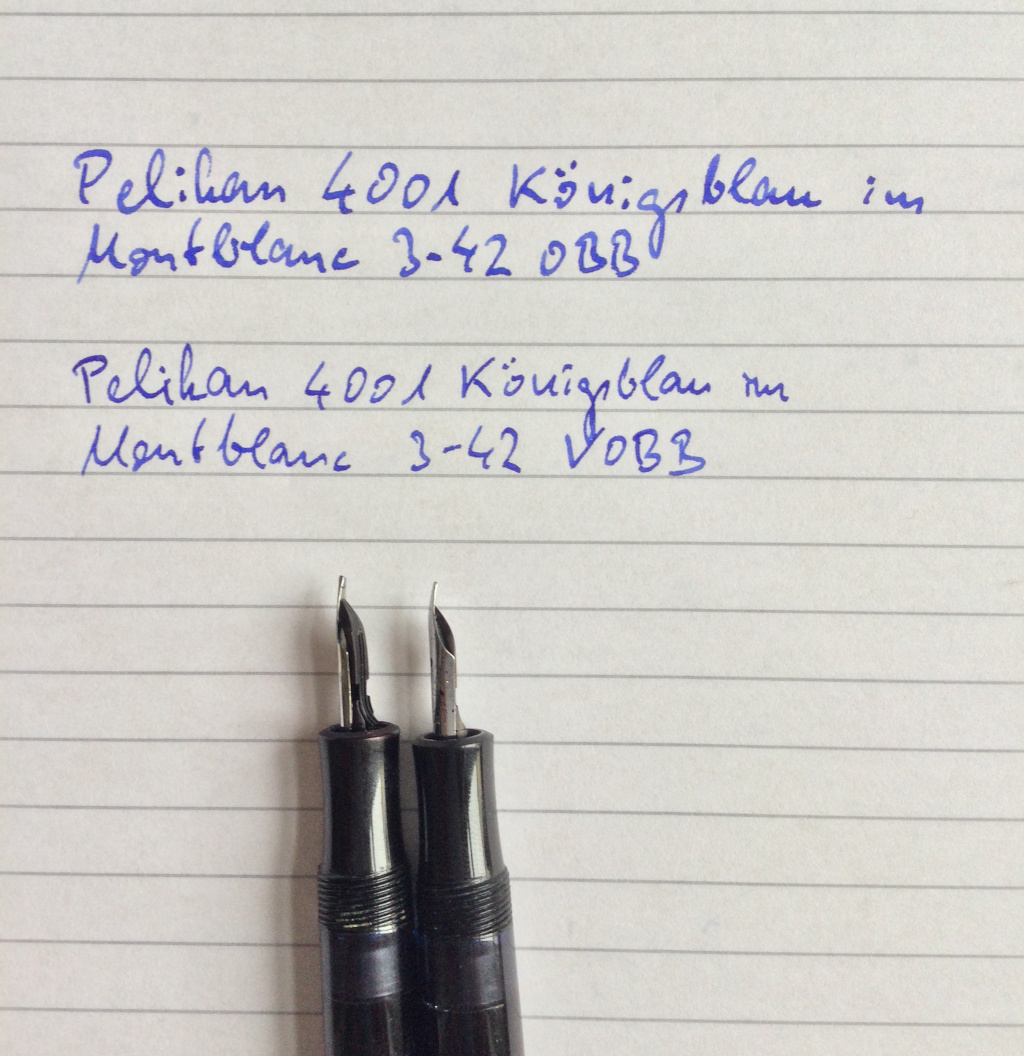 Pelikan 4001 Königsblau im
Montblanc 3-42 OBB
Pelikan 4001 Königsblau im
Montblanc 3-42 VOBB